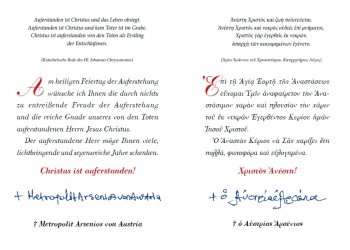 Auferstanden ist Christus und das Leben obsiegt.
Auferstanden ist Christus und kein Toter ist im Grabe.
Christus ist auferstanden von den Toten als Erstling
der Entschlafenen.
(Katechetische Rede des Hl. Johannes Chrysostomus)
Am heiligen Feiertag der Auferstehung
wünsche ich Ihnen die durch nichts
zu entreißende Freude der Auferstehung
und die reiche Gnade unseres von den Toten
auferstandenen Herrn Jesus Christus.
Der auferstandene Herr möge Ihnen viele,
lichtbringende und segensreiche Jahre schenken.
Christus ist auferstanden!
+ Metropolit Arsenios von Austria
† Metropolit Arsenios von Austria
Ἀνέστη Χριστός καί ζωή πολιτεύεται.
Ἀνέστη Χριστός καί νεκρός οὐδείς ἐπί μνήματος.
Χριστός γάρ ἐγερθείς ἐκ νεκρῶν,
ἀπαρχή τῶν κεκοιμημένων ἐγένετο.
(Ἁγίου Ἰωάννου τοῦ Χρυσοστόμου, Κατηχητικός Λόγος)
Ἐπί τῇ Ἁγίᾳ Ἑορτῇ τῆς Ἀναστάσεως
εὔχομαι Ὑμῖν ἀναφαίρετον τήν Ἀνα-
στάσιμον χαράν καί πλουσίαν τήν χάριν
τοῦ ἐκ νεκρῶν ἐγερθέντος Κυρίου ἡμῶν
Ἰησοῦ Χριστοῦ.
Ὁ Ἀναστάς Κύριος νά Σᾶς χαρίζει ἔτη
πολλά, φωτοφόρα καί εὐλογημένα.
Χριστός Ἀνέστη!
+ ὁ Αὐστρίας Ἀρσένιος
† ὁ Αὐστρίας Ἀρσένιος